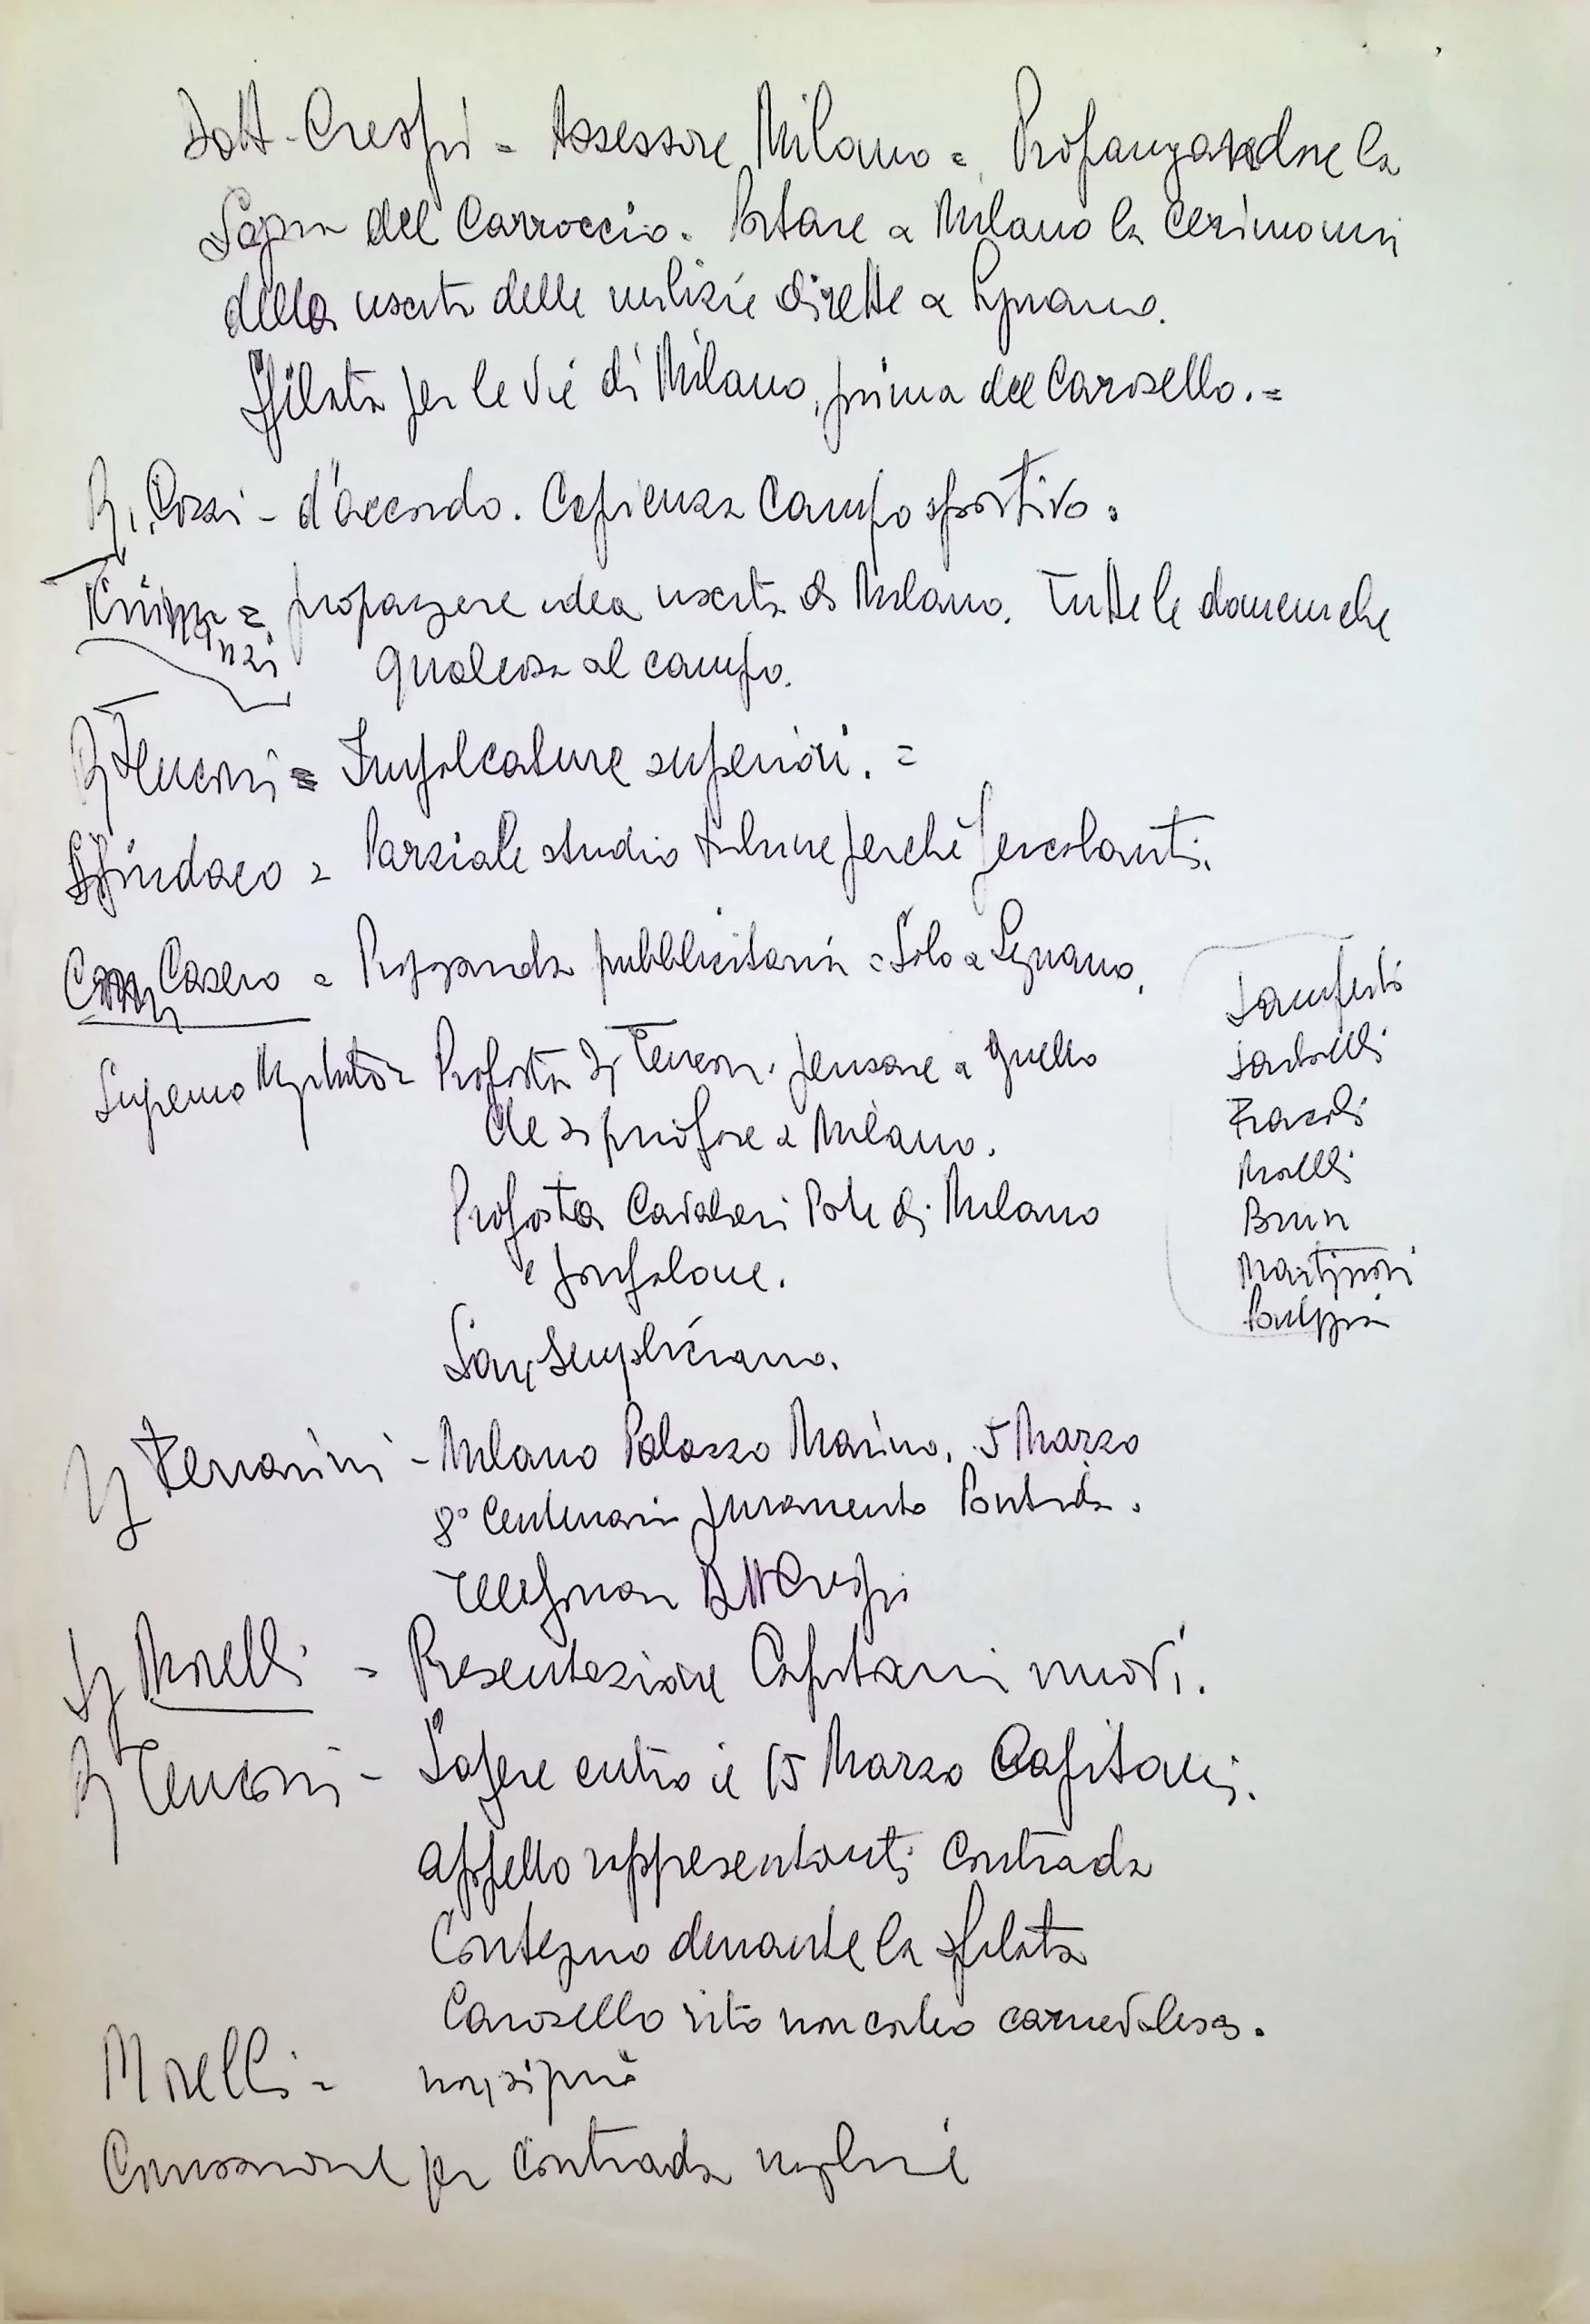 Dott. Crespi = Assessore Milano = Propagandare la
Sagra del Carroccio. Portare a Milano la cerimonia
della uscita delle milizie dirette a Legnano.
Sfilata per le vie di Milano, prima del Carosello. =
R. Cozzi - d'accordo. Capienza Campo sportivo.
propagare idea uscita da Milano. Tutte le domeniche
qualcosa al campo.
R. Tenconi = Impalcature superiori. =
Sindaco = Parziale studio tribune perchè pericolanti.
Casero = Propaganda pubblicitaria = Solo a Legnano.
Supremo Magistrato = Proposta Tenconi. pensare a quello
che si può fare a Milano.
Proposta Cavalieri Porte di Milano
e gonfalone.
San Simpliciano.
Ferrarini - Milano Palazzo Marino. 5 Marzo
8° Centenario giuramento Pontida.
Telefonare Dott Crespi
Morelli = Presentazione Capitani nuovi.
R. Tenconi - Sapere entro il 15 Marzo Capitani.
appello rappresentanti Contrada
Contegno durante la sfilata
Carosello rito non corteo carnevalesco.
Morelli = non si può
Commissione per Contrada migliore
Landini
Morelli
Brun
Martignoni